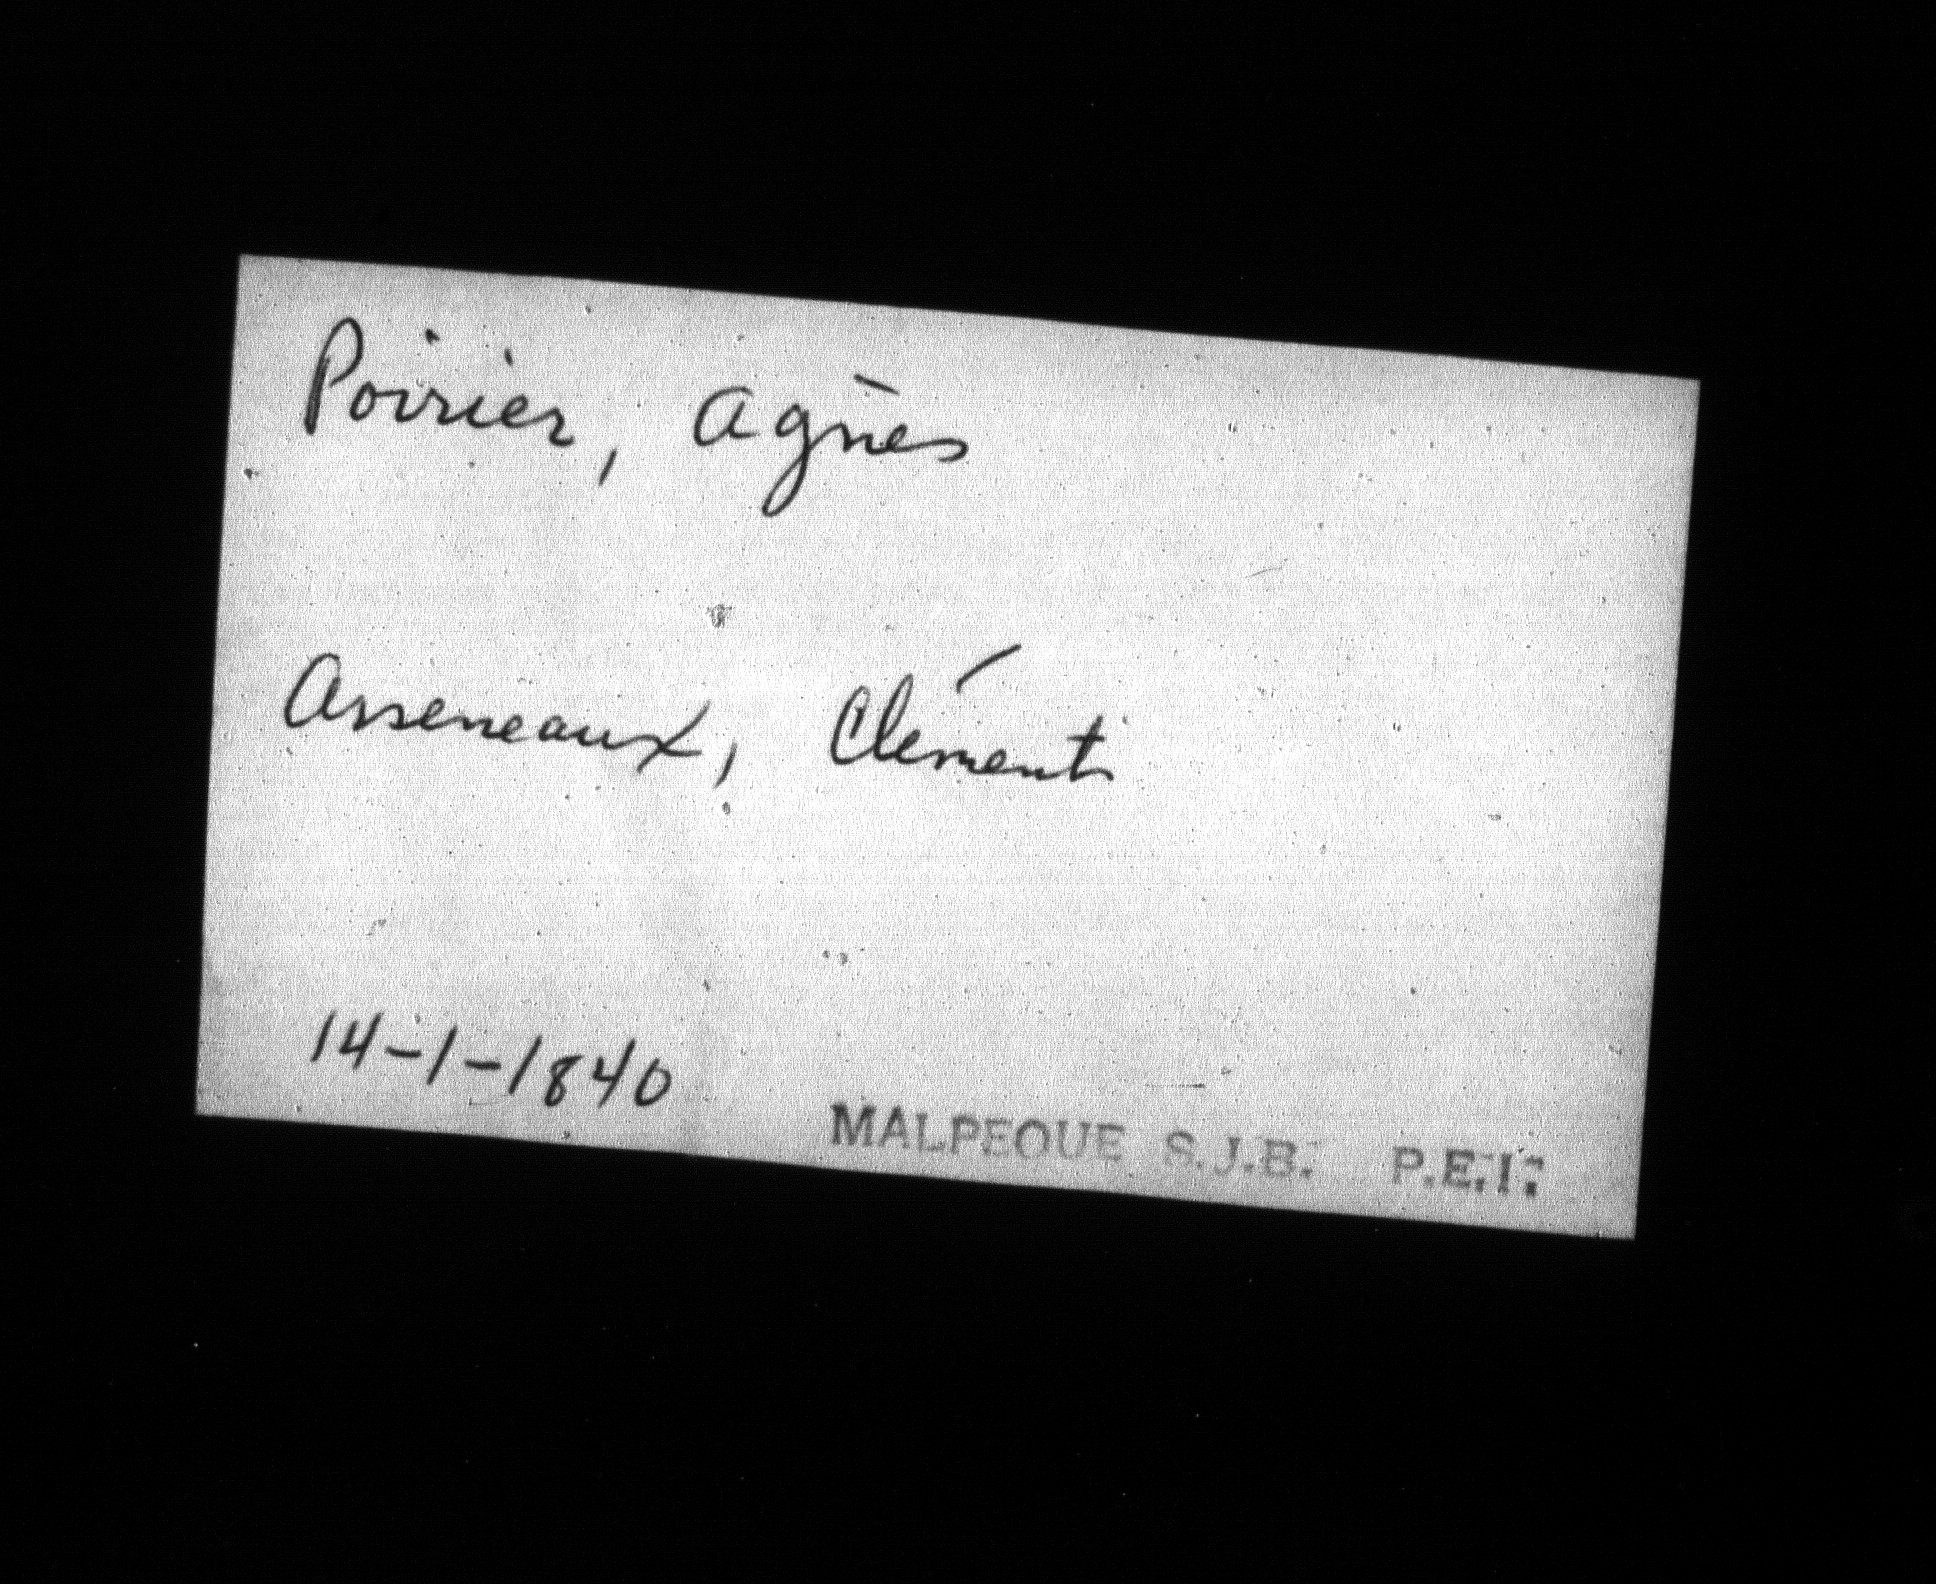 Poirier, Agnès
Arseneaux, Clément
14-1-1840
MALPEQUE S.J.B. P.E.I.